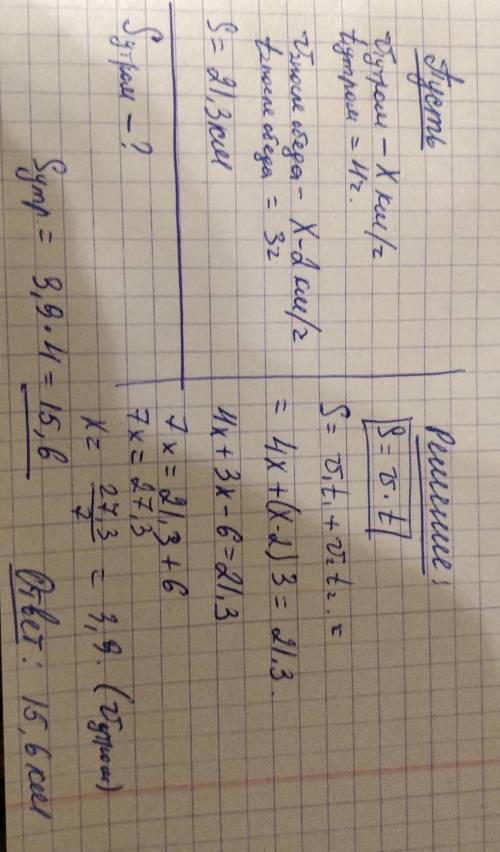 Пусть
Vутром – X км/ч
tутром = 4ч.
Vпосле обеда – X-2 км/ч
tпосле обеда = 3ч
S = 21,3 км
Sутром – ?
Решение:
S = v · t
S = v₁t₁ + v₂t₂ · =
= 4x + (x-2) 3 = 21,3.
4x + 3x - 6 = 21,3
7x = 21,3 + 6
7x = 27,3
x = 27,3/7 = 3,9. (Vутром)
Sутр = 3,9 · 4 = 15,6
Ответ: 15,6 км